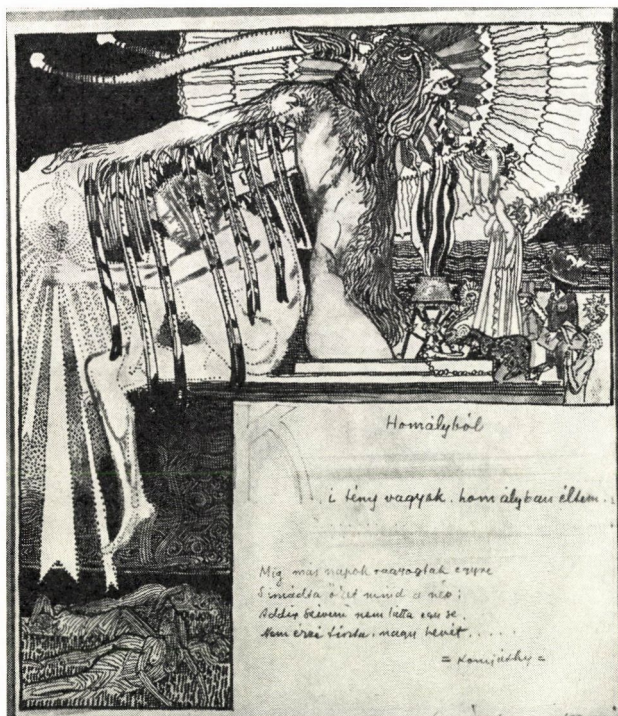 Homályból
Ki fény vagyok, homályban éltem.
Míg más napok ragyogtak egyre
S imádta őket mind a nép;
Addig szivem nem látta egy se.
Nem érzé tiszta, nagy hevét.....
= Komjáthy =